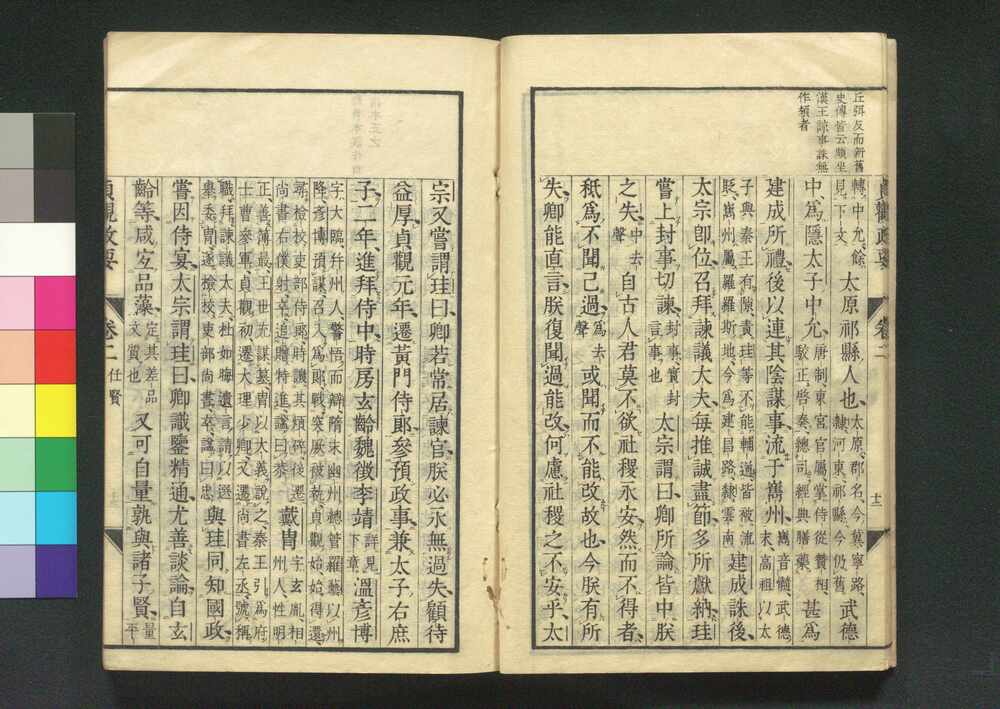 丘弭反而新舊
史傳皆云頰坐
漢王諒事誅無
作頍者
轉、中允、餘見下文、太原祁縣人也、太原、郡名、今冀寧路、隸河東、祁縣、今仍舊、武德
中、爲隱太子中允、唐制、東宮官屬、掌侍從贊相、駮正啓奏、總司經典膳藥、甚爲
建成所禮、後以連其陰謀事、流于嶲州、嶲、音髓、武德末、高祖以太
子與秦王有隙、責珪等不能輔道、皆被流貶、嶲州、屬羅羅斯地、今爲建昌路、隸雲南、建成誅後、
太宗卽位、召拜諫議大夫、每推誠盡節、多所獻納、珪
嘗上封事切諫、封事、實封言事也、太宗謂曰、卿所論皆中朕
之失、中、去聲、自古人君莫不欲社稷永安、然而不得者、
秖爲不聞己過、爲、去聲、或聞而不能改故也、今朕有所
失、卿能直言、朕復聞過能改、何慮社稷之不安乎、太
貞觀政要
卷二
十二
宗又嘗謂珪曰、卿若常居諫官、朕必永無過失、顧待
益厚、貞觀元年、遷黃門侍郎、參預政事、兼太子右庶
子、二年、進拜侍中、時房玄齡、魏徵、李靖、詳見下章、溫彥博、
字大臨、幷州人、警悟而辯、隋末、幽州總管羅藝、以州降、彥博預謀、召入爲郎、戰突厥被執、貞觀始、始得還、
尋檢校吏部侍郎、時譏其煩碎、後遷尚書右僕射、卒、追贈特進、謚曰恭、戴胄、字玄胤、相州人、性明
正、善簿最、王世充謀篡、胄以大義說之、秦王引爲府士曹參軍、貞觀初、遷大理少卿、又遷尚書左丞、號稱
職、拜諫議大夫、杜如晦遺言、請以選舉委胄、遂檢校吏部尚書、卒、謚曰忠、與珪同知國政、
嘗因侍宴、太宗謂珪曰、卿識鑒精通、尤善談論、自玄
齡等、咸宜品藻、定其差品文質也、又可自量孰與諸子賢、量平
貞觀政要
卷二
任賢